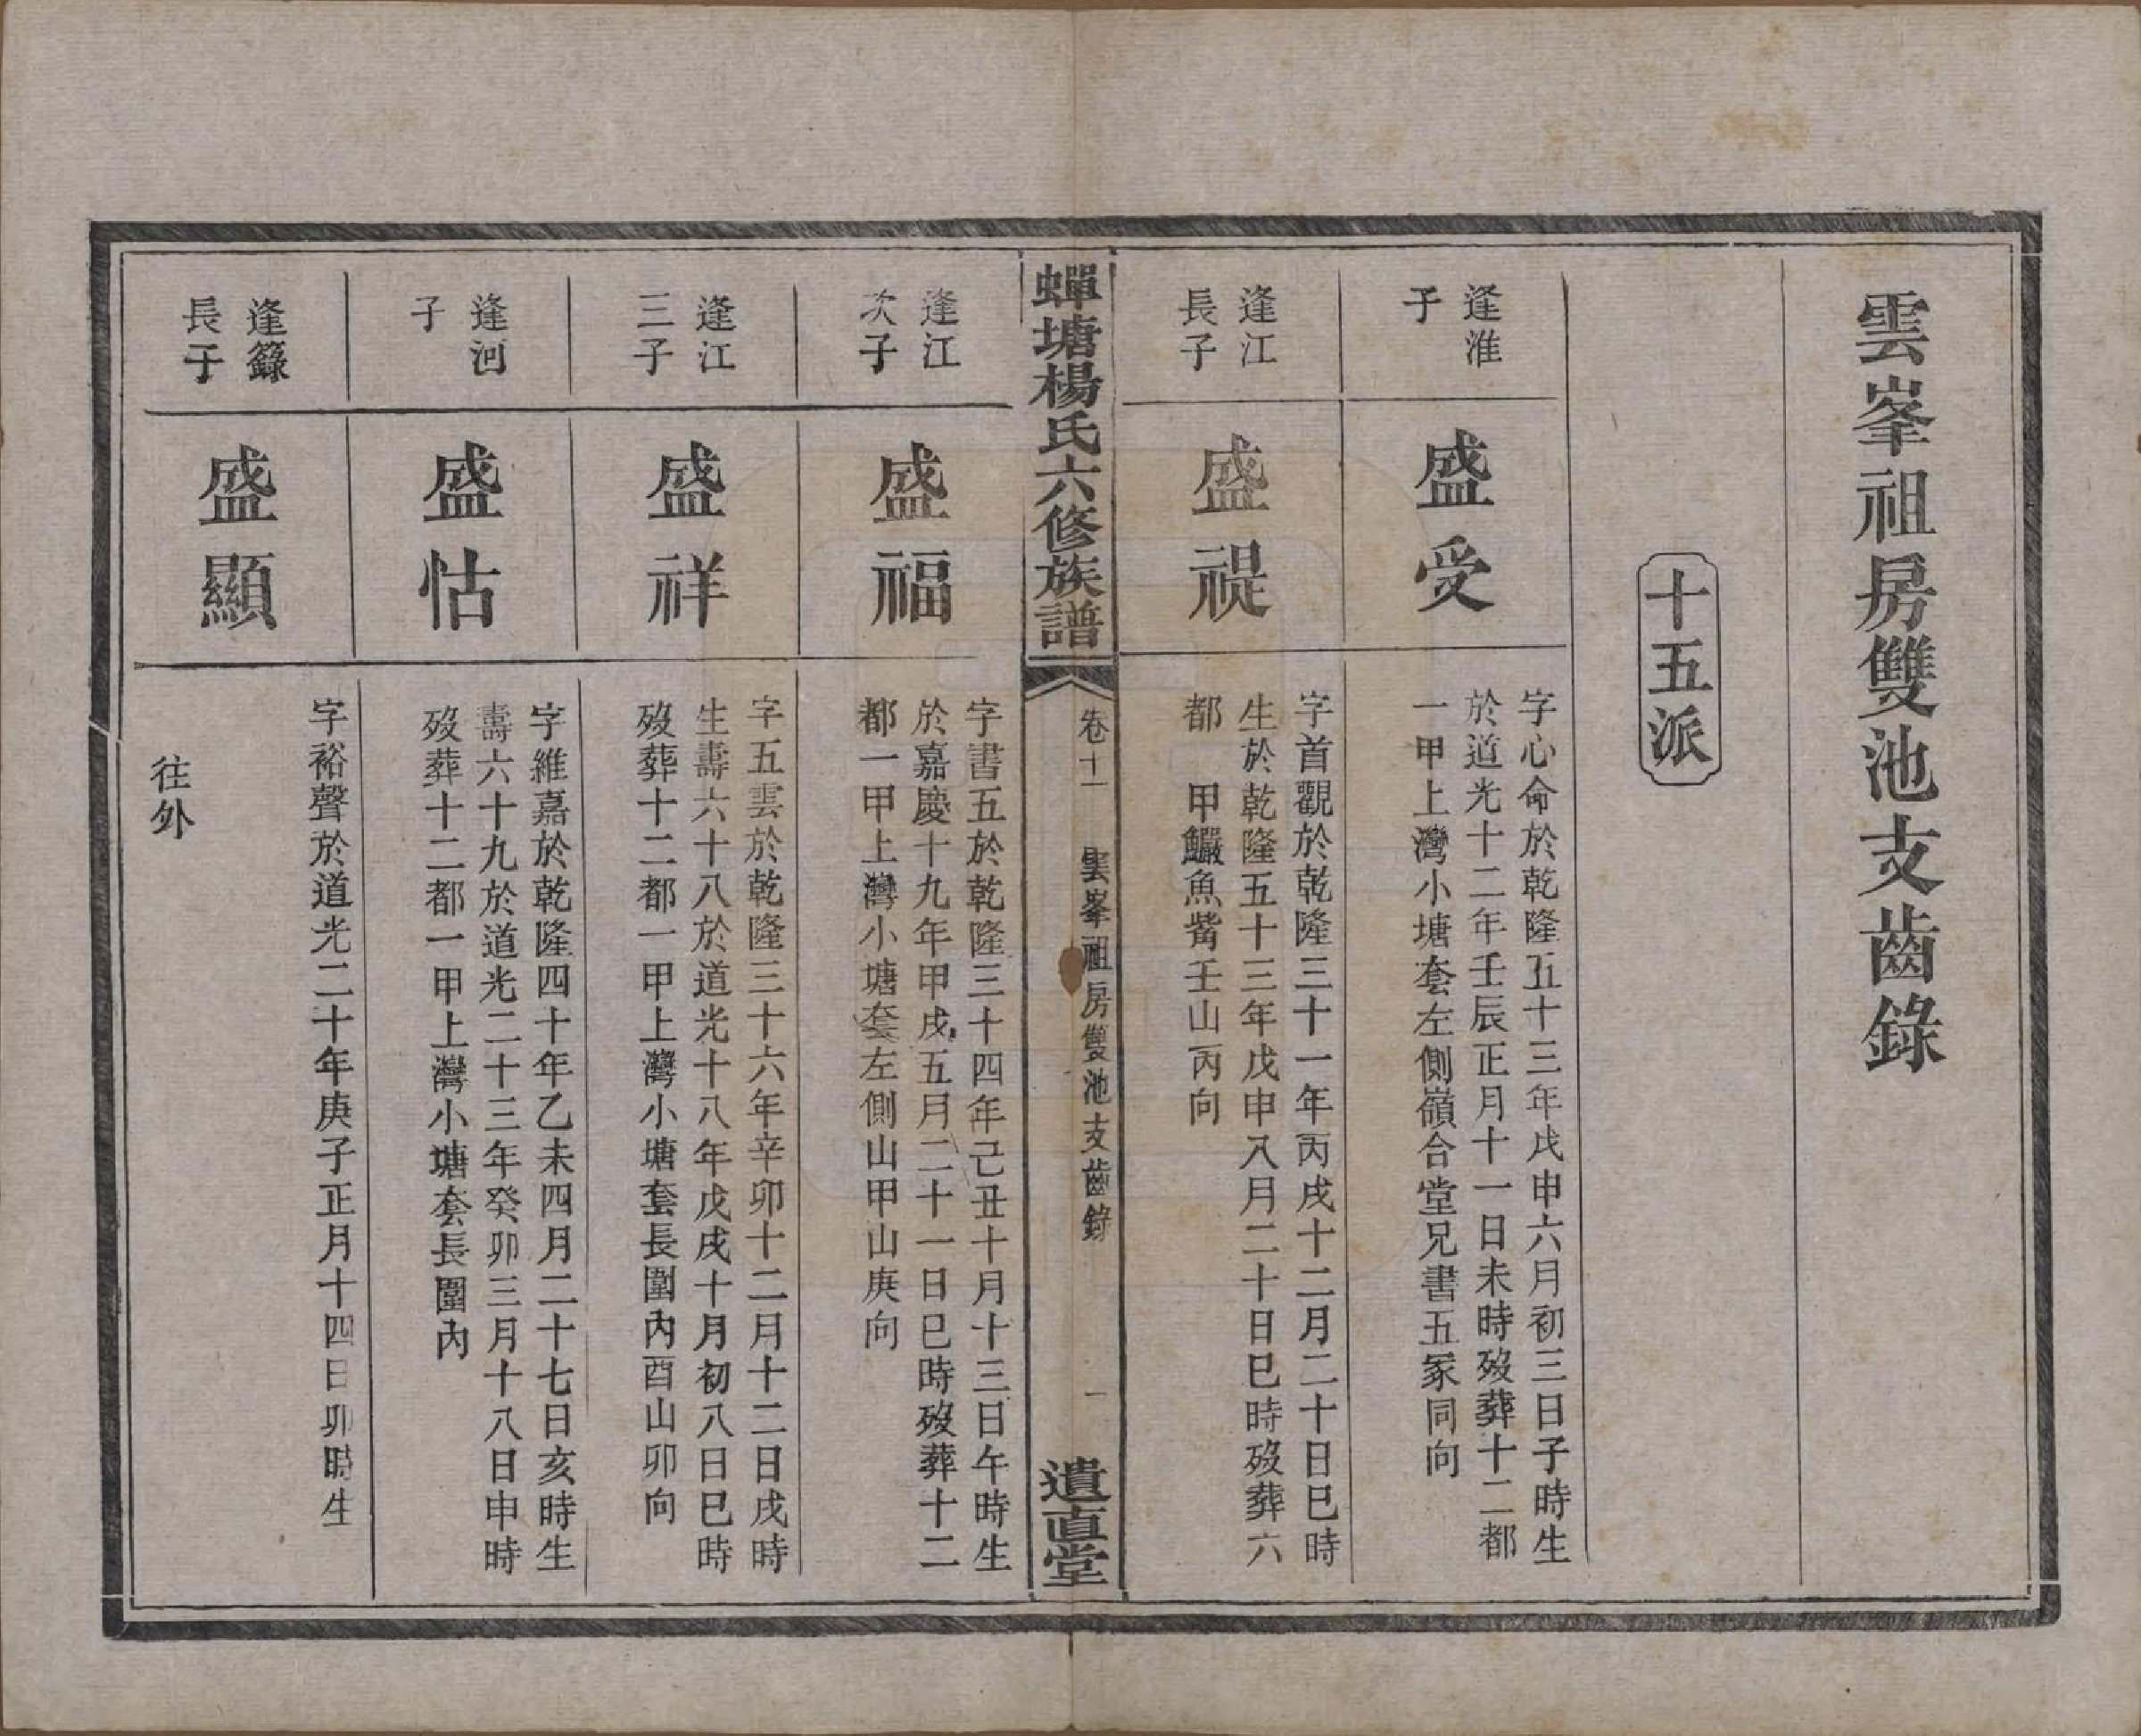 雲峯祖房雙池支齒錄
十五派
逢淮
子
盛受
字心命於乾隆五十三年戊申六月初三日子時生
於道光十二年壬辰正月十一日未時歿葬十二都
一甲上灣小塘套左側嶺合堂兄書五冢同向
逢江
長子
盛禔
字首觀於乾隆三十一年丙戌十二月二十日巳時
生於乾隆五十三年戊申八月二十日巳時歿葬六
都　甲鱺魚觜壬山丙向
蟬塘楊氏六修族譜
卷十一
雲峯祖房雙池支齒錄
一
遺直堂
逢江
次子
盛福
字書五於乾隆三十四年己丑十月十三日午時生
於嘉慶十九年甲戌五月二十一日巳時歿葬十二
都一甲上灣小塘套左側山甲山庚向
逢江
三子
盛祥
字五雲於乾隆三十六年辛卯十二月十二日戌時
生壽六十八於道光十八年戊戌十月初八日巳時
歿葬十二都一甲上灣小塘套長圍內酉山卯向
逢河
子
盛怙
字維嘉於乾隆四十年乙未四月二十七日亥時生
壽六十九於道光二十三年癸卯三月十八日申時
歿葬十二都一甲上灣小塘套長圍內
逢籙
長子
盛顯
字裕聲於道光二十年庚子正月十四日卯時生
往外